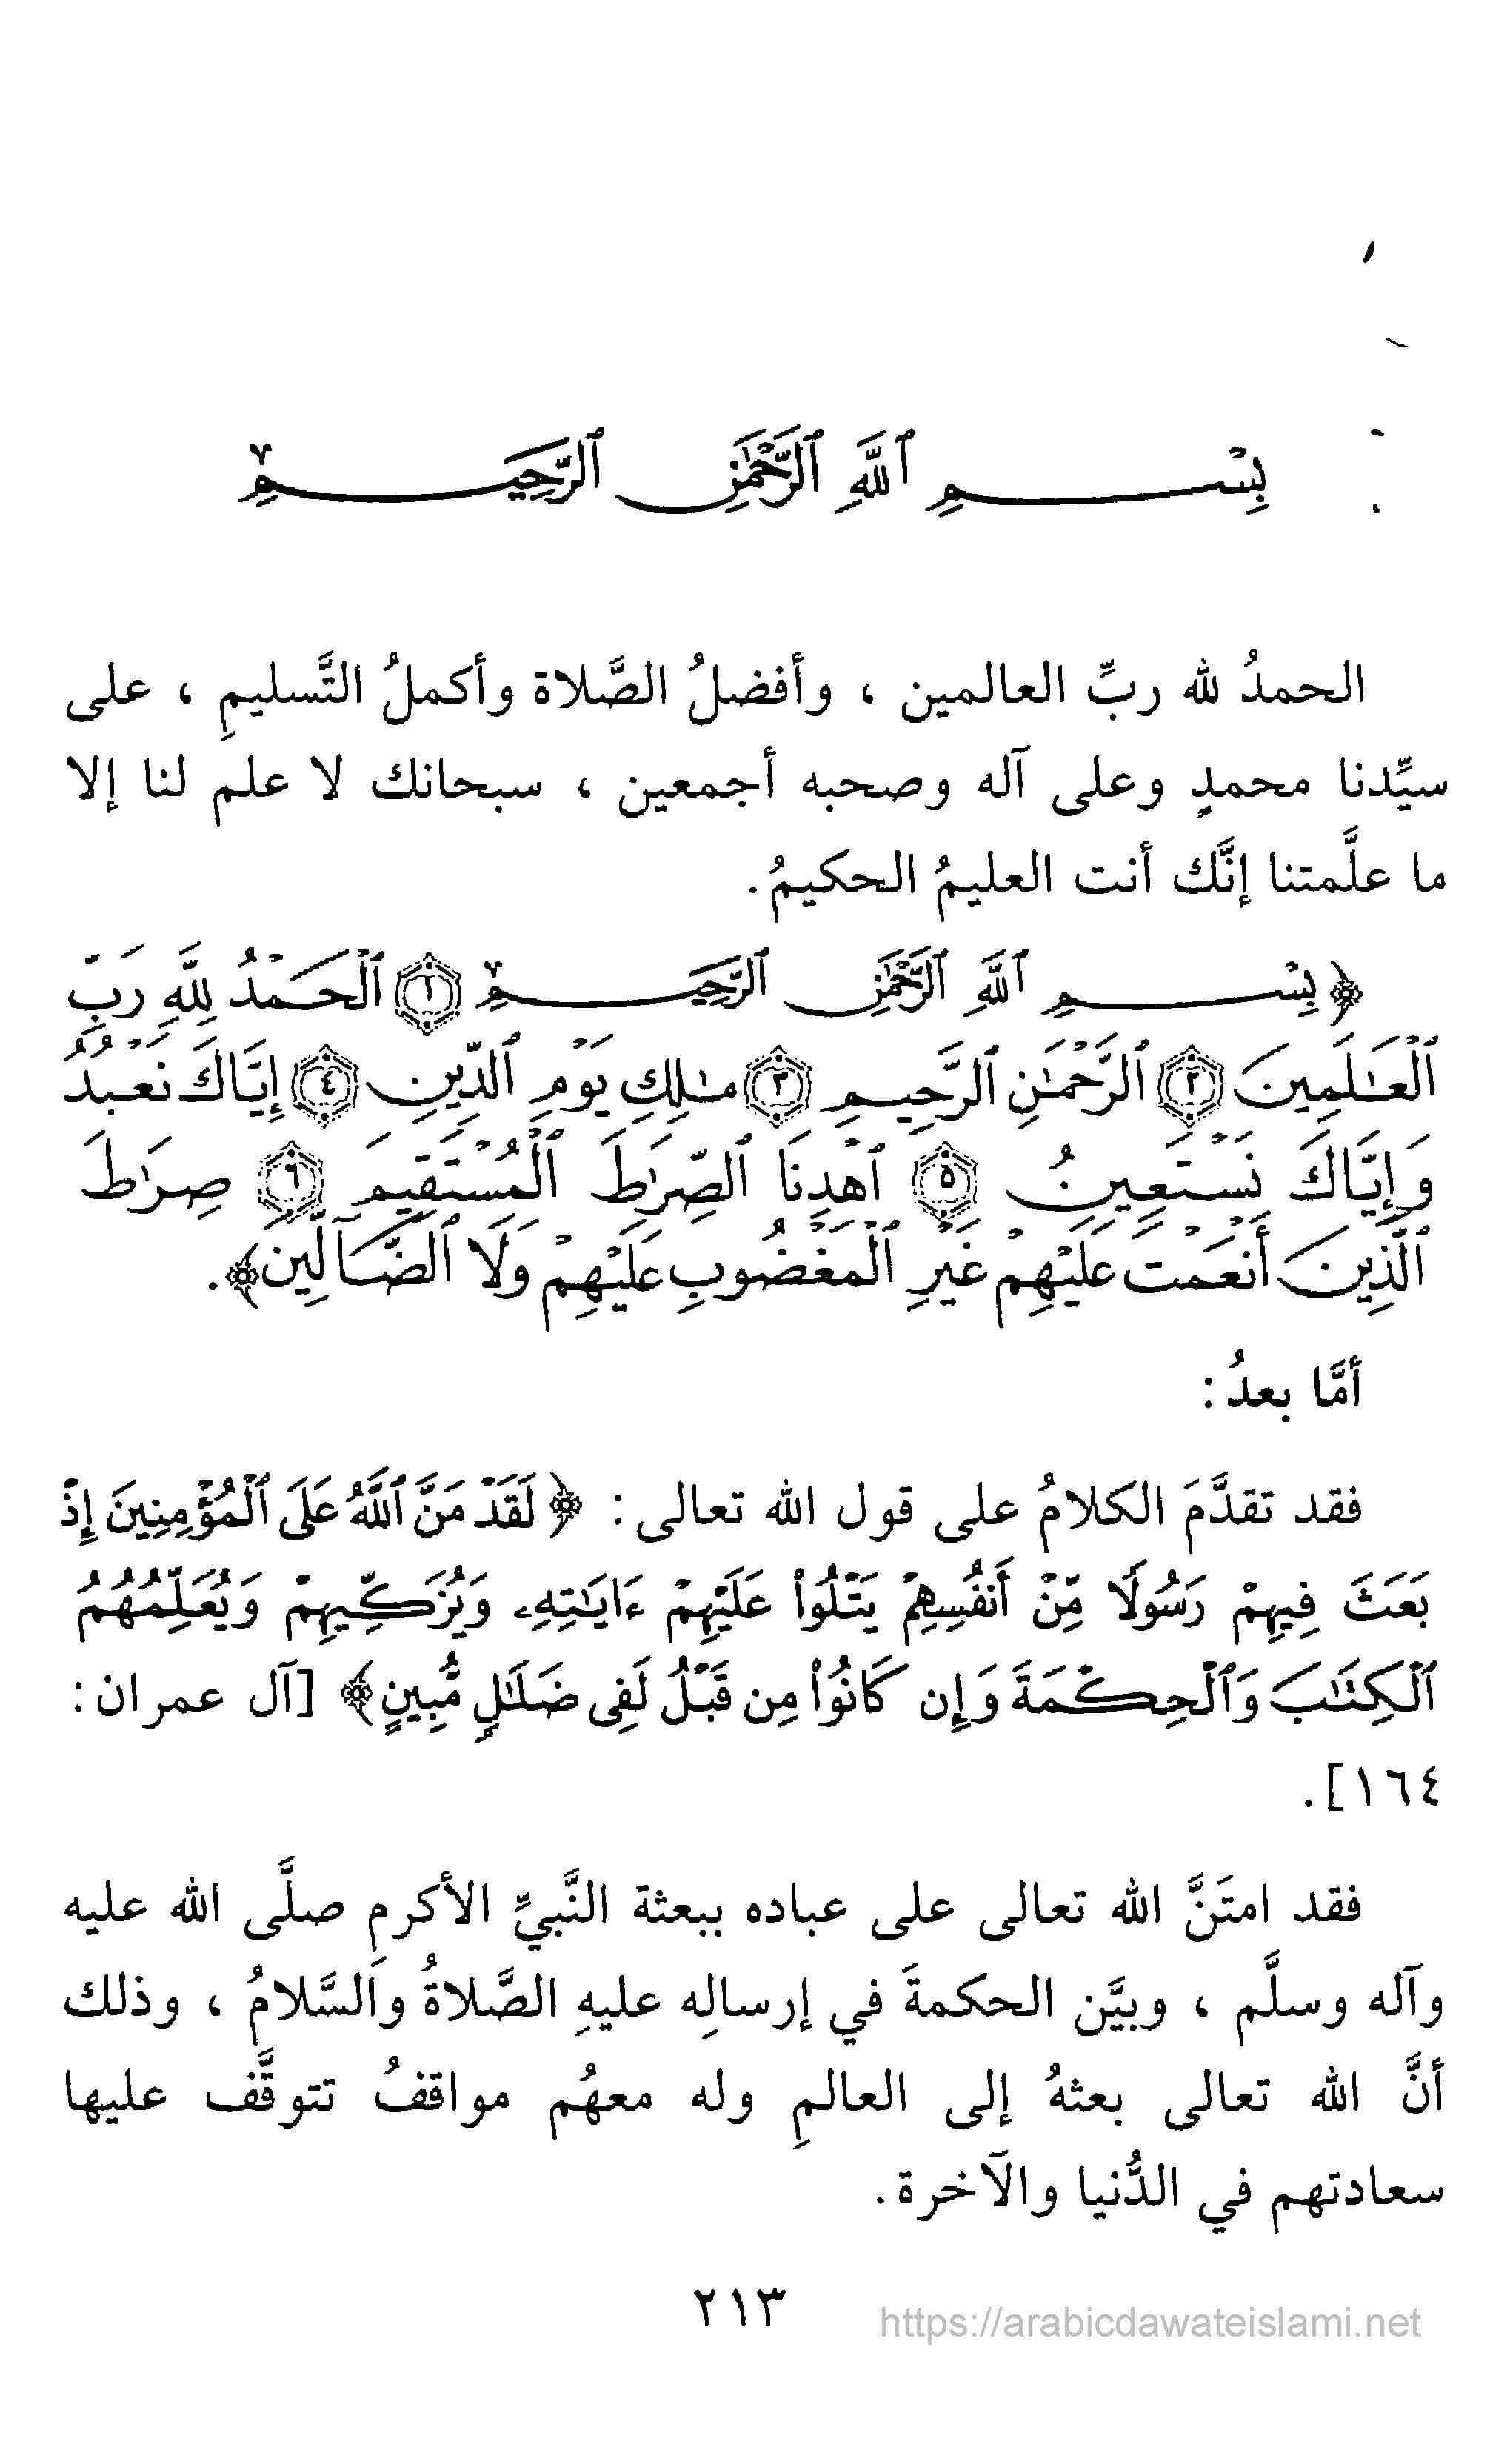 بِسْمِ ٱللَّهِ ٱلرَّحْمَٰنِ ٱلرَّحِيمِ
الحمدُ لله ربِّ العالمين ، وأفضلُ الصَّلاة وأكملُ التَّسليمِ ، على
سيِّدنا محمدٍ وعلى آله وصحبه أجمعين ، سبحانك لا علم لنا إلا
ما علَّمتنا إنَّك أنت العليمُ الحكيمُ.
﴿بِسْمِ ٱللَّهِ ٱلرَّحْمَٰنِ ٱلرَّحِيمِ ١ ٱلْحَمْدُ لِلَّهِ رَبِّ
ٱلْعَٰلَمِينَ ٢ ٱلرَّحْمَٰنِ ٱلرَّحِيمِ ٣ مَٰلِكِ يَوْمِ ٱلدِّينِ ٤ إِيَّاكَ نَعْبُدُ
وَإِيَّاكَ نَسْتَعِينُ ٥ ٱهْدِنَا ٱلصِّرَٰطَ ٱلْمُسْتَقِيمَ ٦ صِرَٰطَ
ٱلَّذِينَ أَنْعَمْتَ عَلَيْهِمْ غَيْرِ ٱلْمَغْضُوبِ عَلَيْهِمْ وَلَا ٱلضَّآلِّينَ﴾.
أمَّا بعدُ:
فقد تقدَّمَ الكلامُ على قول الله تعالى: ﴿لَقَدْ مَنَّ ٱللَّهُ عَلَى ٱلْمُؤْمِنِينَ إِذْ
بَعَثَ فِيهِمْ رَسُولًا مِّنْ أَنفُسِهِمْ يَتْلُوا۟ عَلَيْهِمْ ءَايَٰتِهِۦ وَيُزَكِّيهِمْ وَيُعَلِّمُهُمُ
ٱلْكِتَٰبَ وَٱلْحِكْمَةَ وَإِن كَانُوا۟ مِن قَبْلُ لَفِى ضَلَٰلٍ مُّبِينٍ﴾ [آل عمران:
١٦٤].
فقد امتَنَّ الله تعالى على عباده ببعثة النَّبيِّ الأكرمِ صلَّى الله عليه
وآله وسلَّم ، وبيَّن الحكمةَ في إرسالِه عليهِ الصَّلاةُ والسَّلامُ ، وذلك
أنَّ الله تعالى بعثهُ إلى العالمِ وله معهُم مواقفُ تتوقَّف عليها
سعادتهم في الدُّنيا والآخرة.
٢١٣
https://arabicdawateislami.net